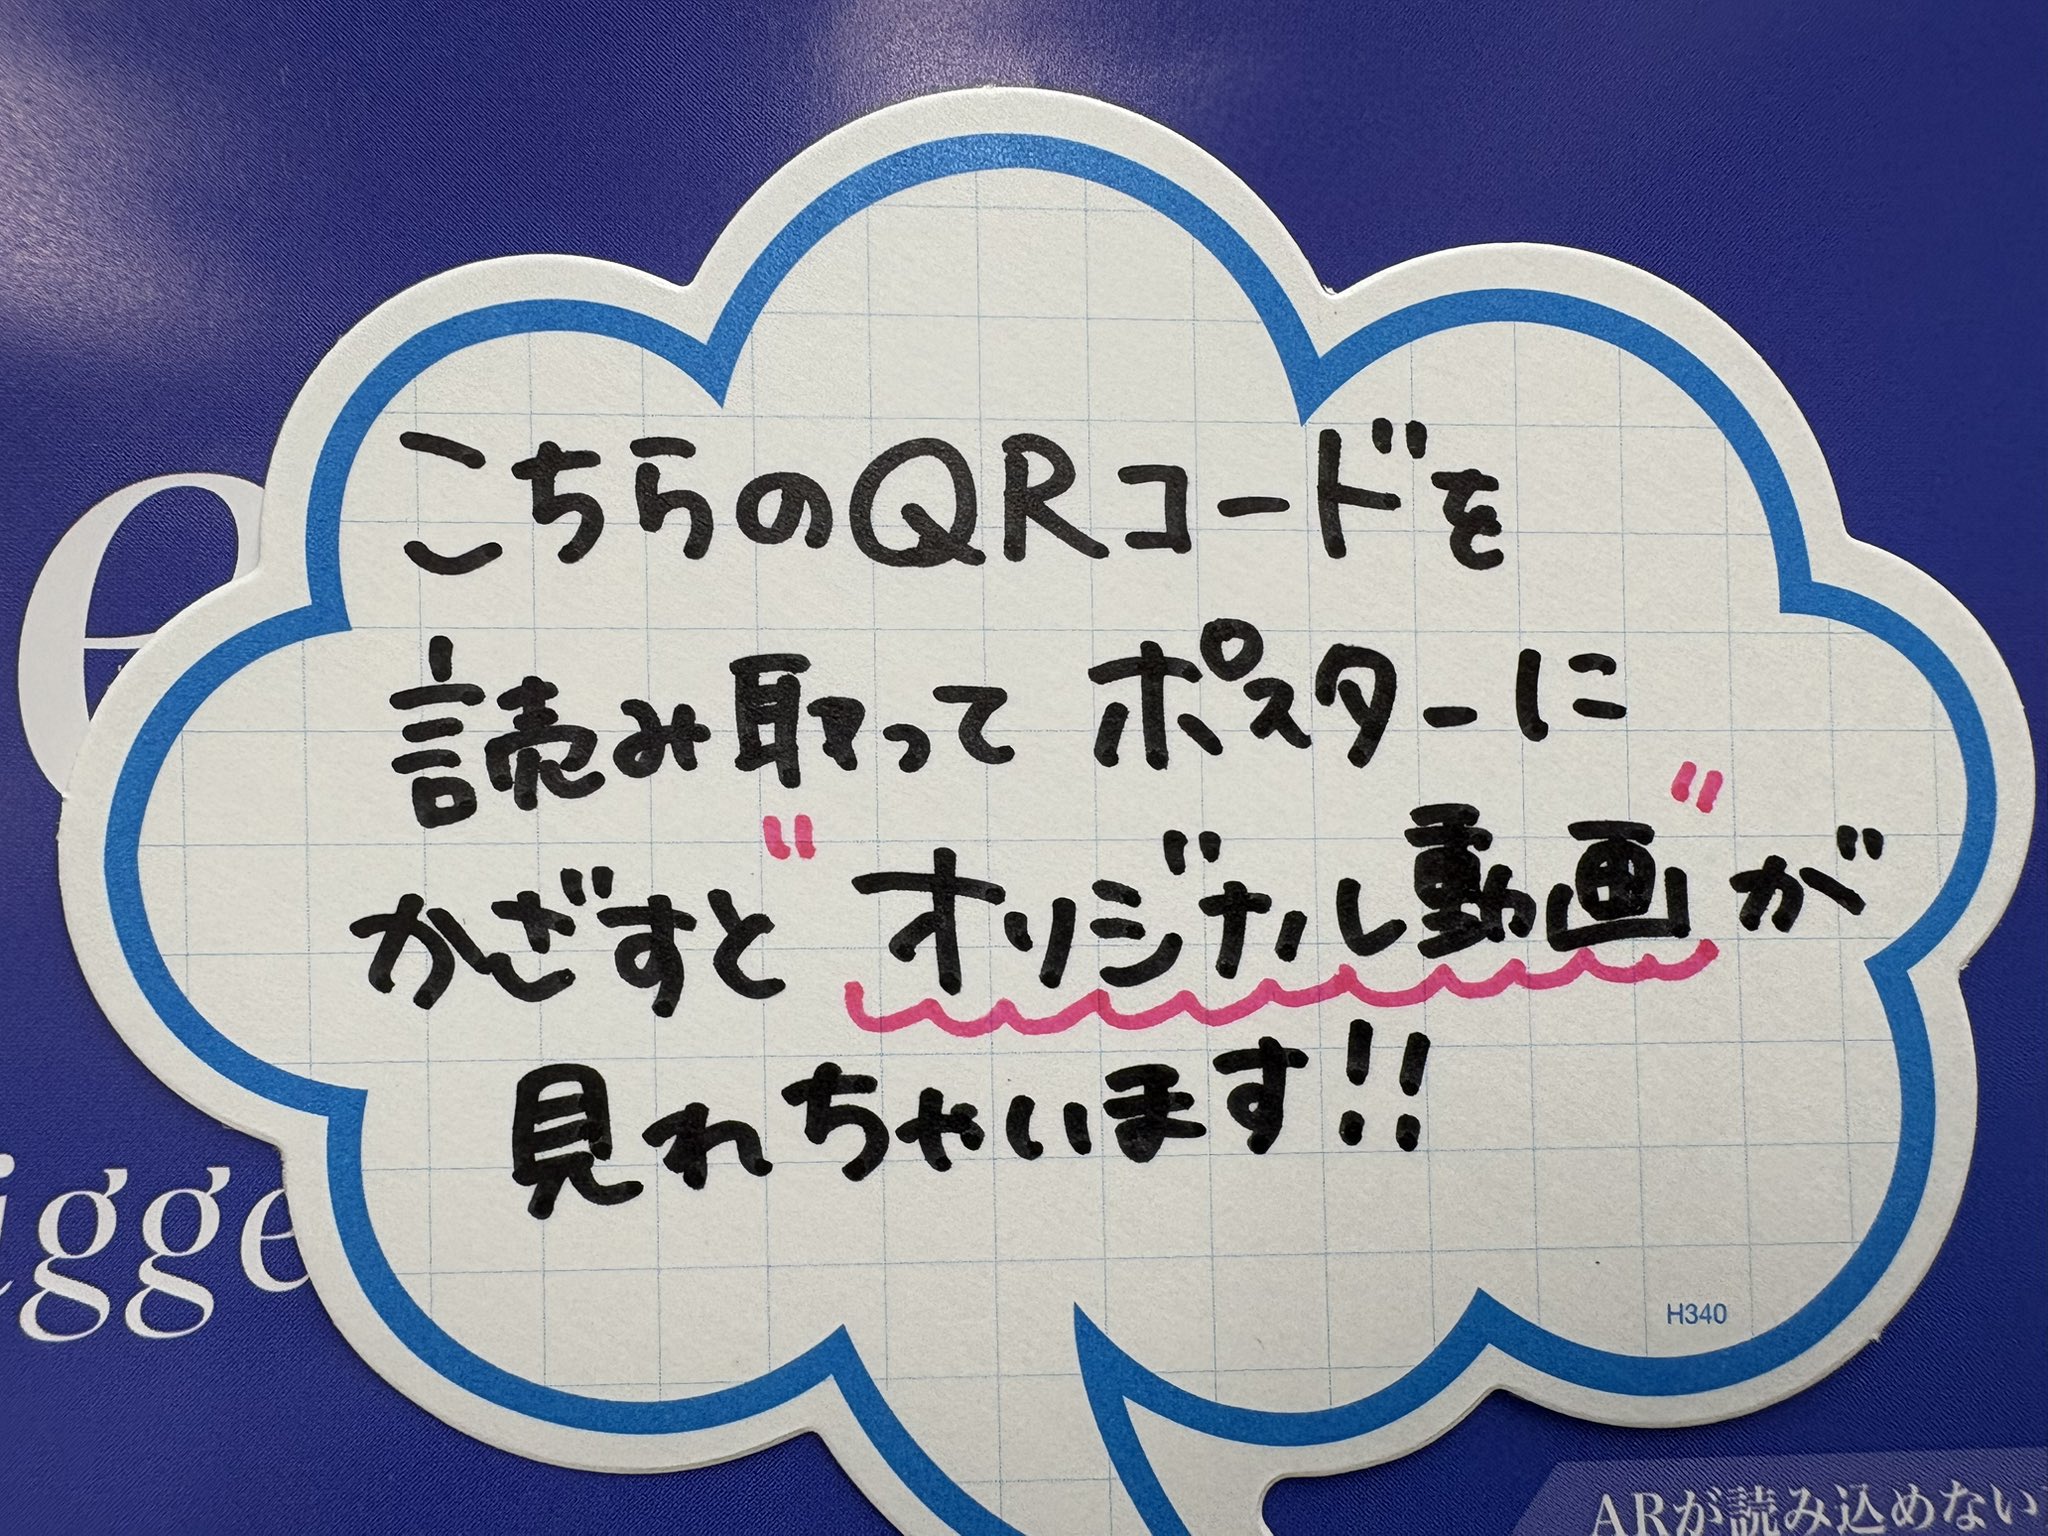 こちらのQRコードを
読み取って ポスターに
かざすと "オリジナル動画" が
見れちゃいます!!
H340
e
igge
ARが読み込めない